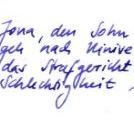 Jona, den Sohn
geh nach Ninive
das Strafgericht
Schlechtigkeit,